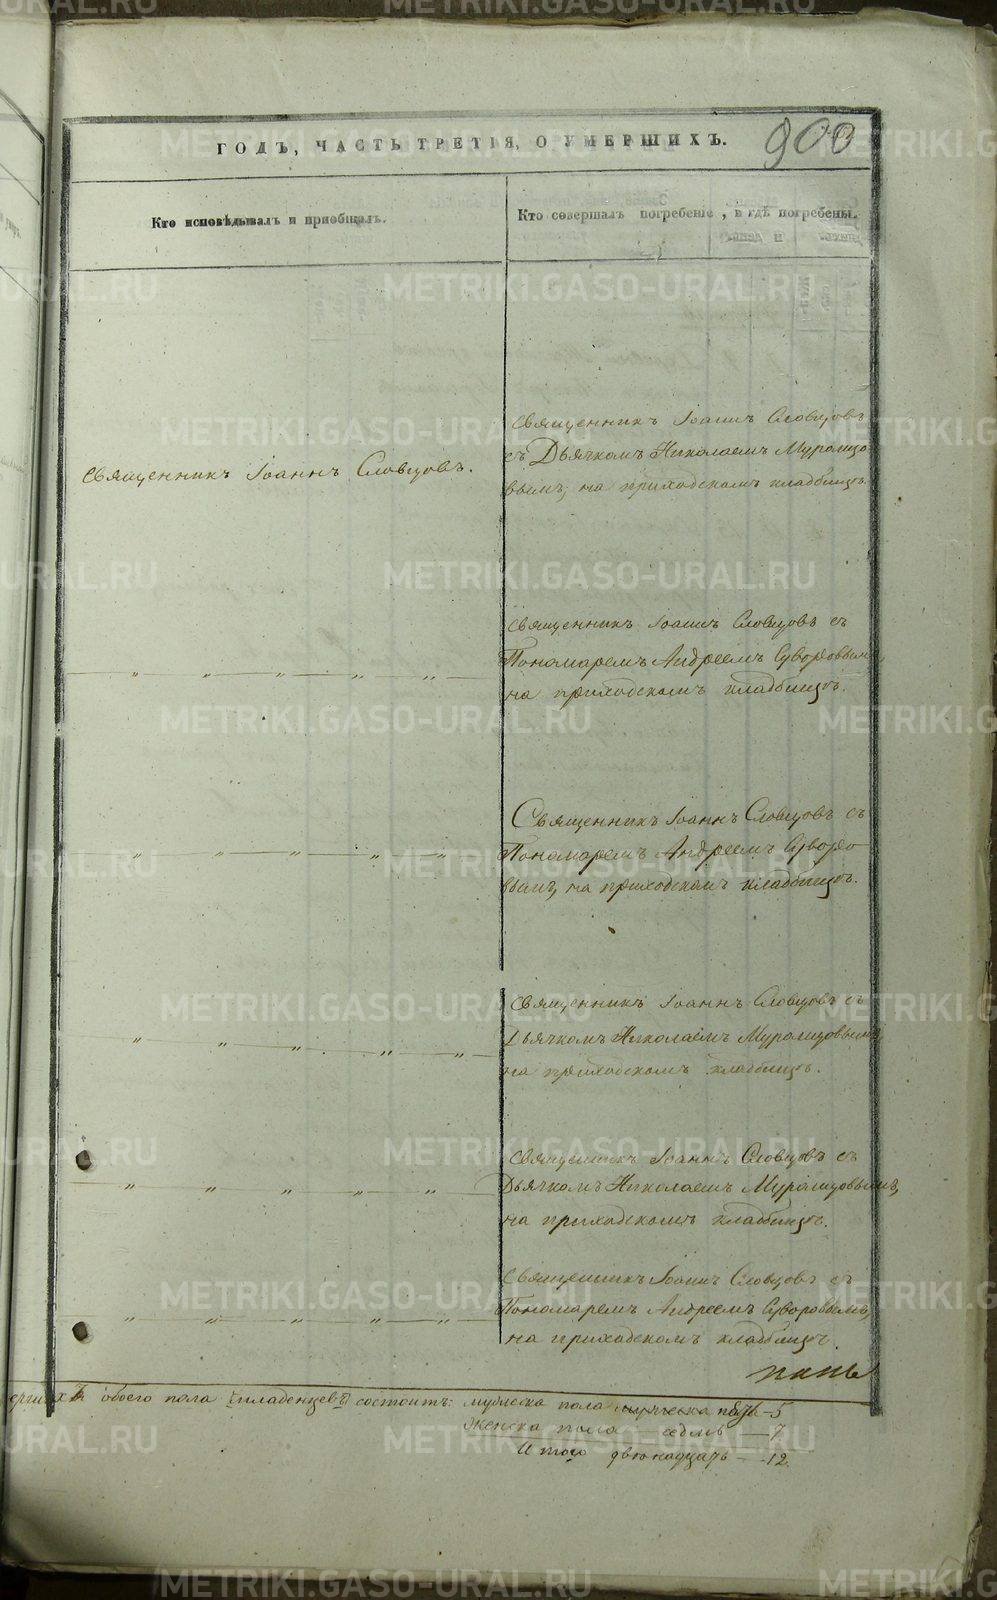 900
ГОДЪ, ЧАСТЬ ТРЕТІЯ, О УМЕРШИХЪ.
Кто исповѣдывалъ и пріобщалъ.
Кто совершалъ погребеніе, и гдѣ погребены.
Священникъ Іоаннъ Словцовъ.
Священникъ Іоаннъ Словцовъ
съ Дьячкомъ Николаемъ Мурзицо
вымъ, на приходскомъ кладбищѣ.
Священникъ Іоаннъ Словцовъ съ
Пономаремъ Андреемъ Суворовымъ,
на приходскомъ кладбищѣ.
Священникъ Іоаннъ Словцовъ съ
Пономаремъ Андреемъ Суворо
вымъ, на приходскомъ кладбищѣ.
Священникъ Іоаннъ Словцовъ съ
Дьячкомъ Николаемъ
на приходскомъ кладбищѣ.
Священникъ Іоаннъ Словцовъ съ
Дьячкомъ Николаемъ
на приходскомъ кладбищѣ.
Священникъ Іоаннъ Словцовъ съ
Пономаремъ Андреемъ Суворовымъ,
на приходскомъ кладбищѣ.
пять
обоего пола младенцевъ состоитъ: мужеска пола —5
Женска пола седмь —7
Итого двенадцать —12.
METRIKI.GASO-URAL.RU